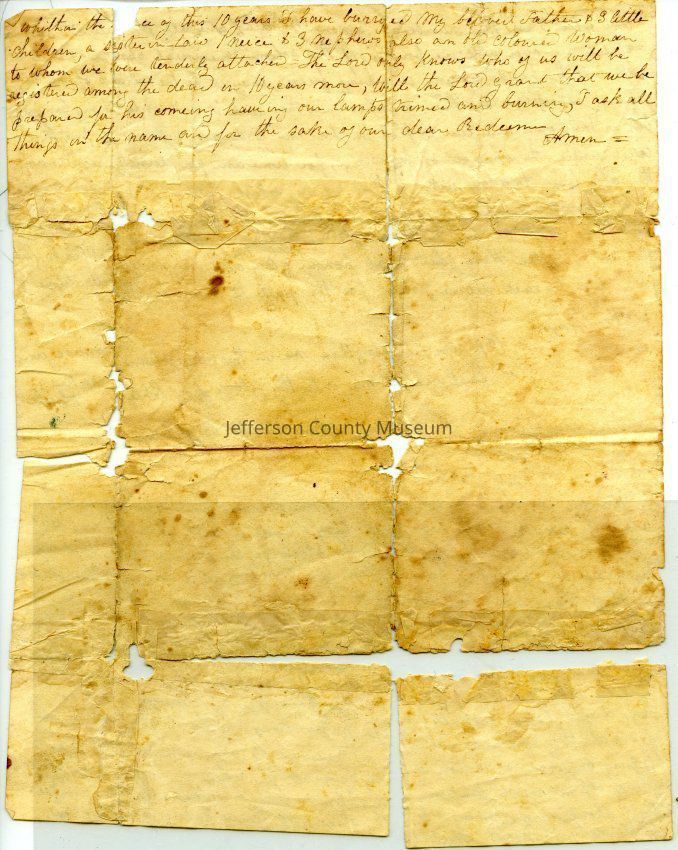 the ce of this 10 years I have burryed My beloved Father & 3 little
children, a sister in Law Neice & 3 nephews also an old coloured Woman
to whom we were tenderly attached The Lord only Knows who of us will be
registered among the dead in 10 years more, Will the Lord grant that we be
prepared for his comeing haveing our lamps trimed and burning, I ask all
things in the name and for the sake of our dear Redeem
Amen =
Jefferson County Museum